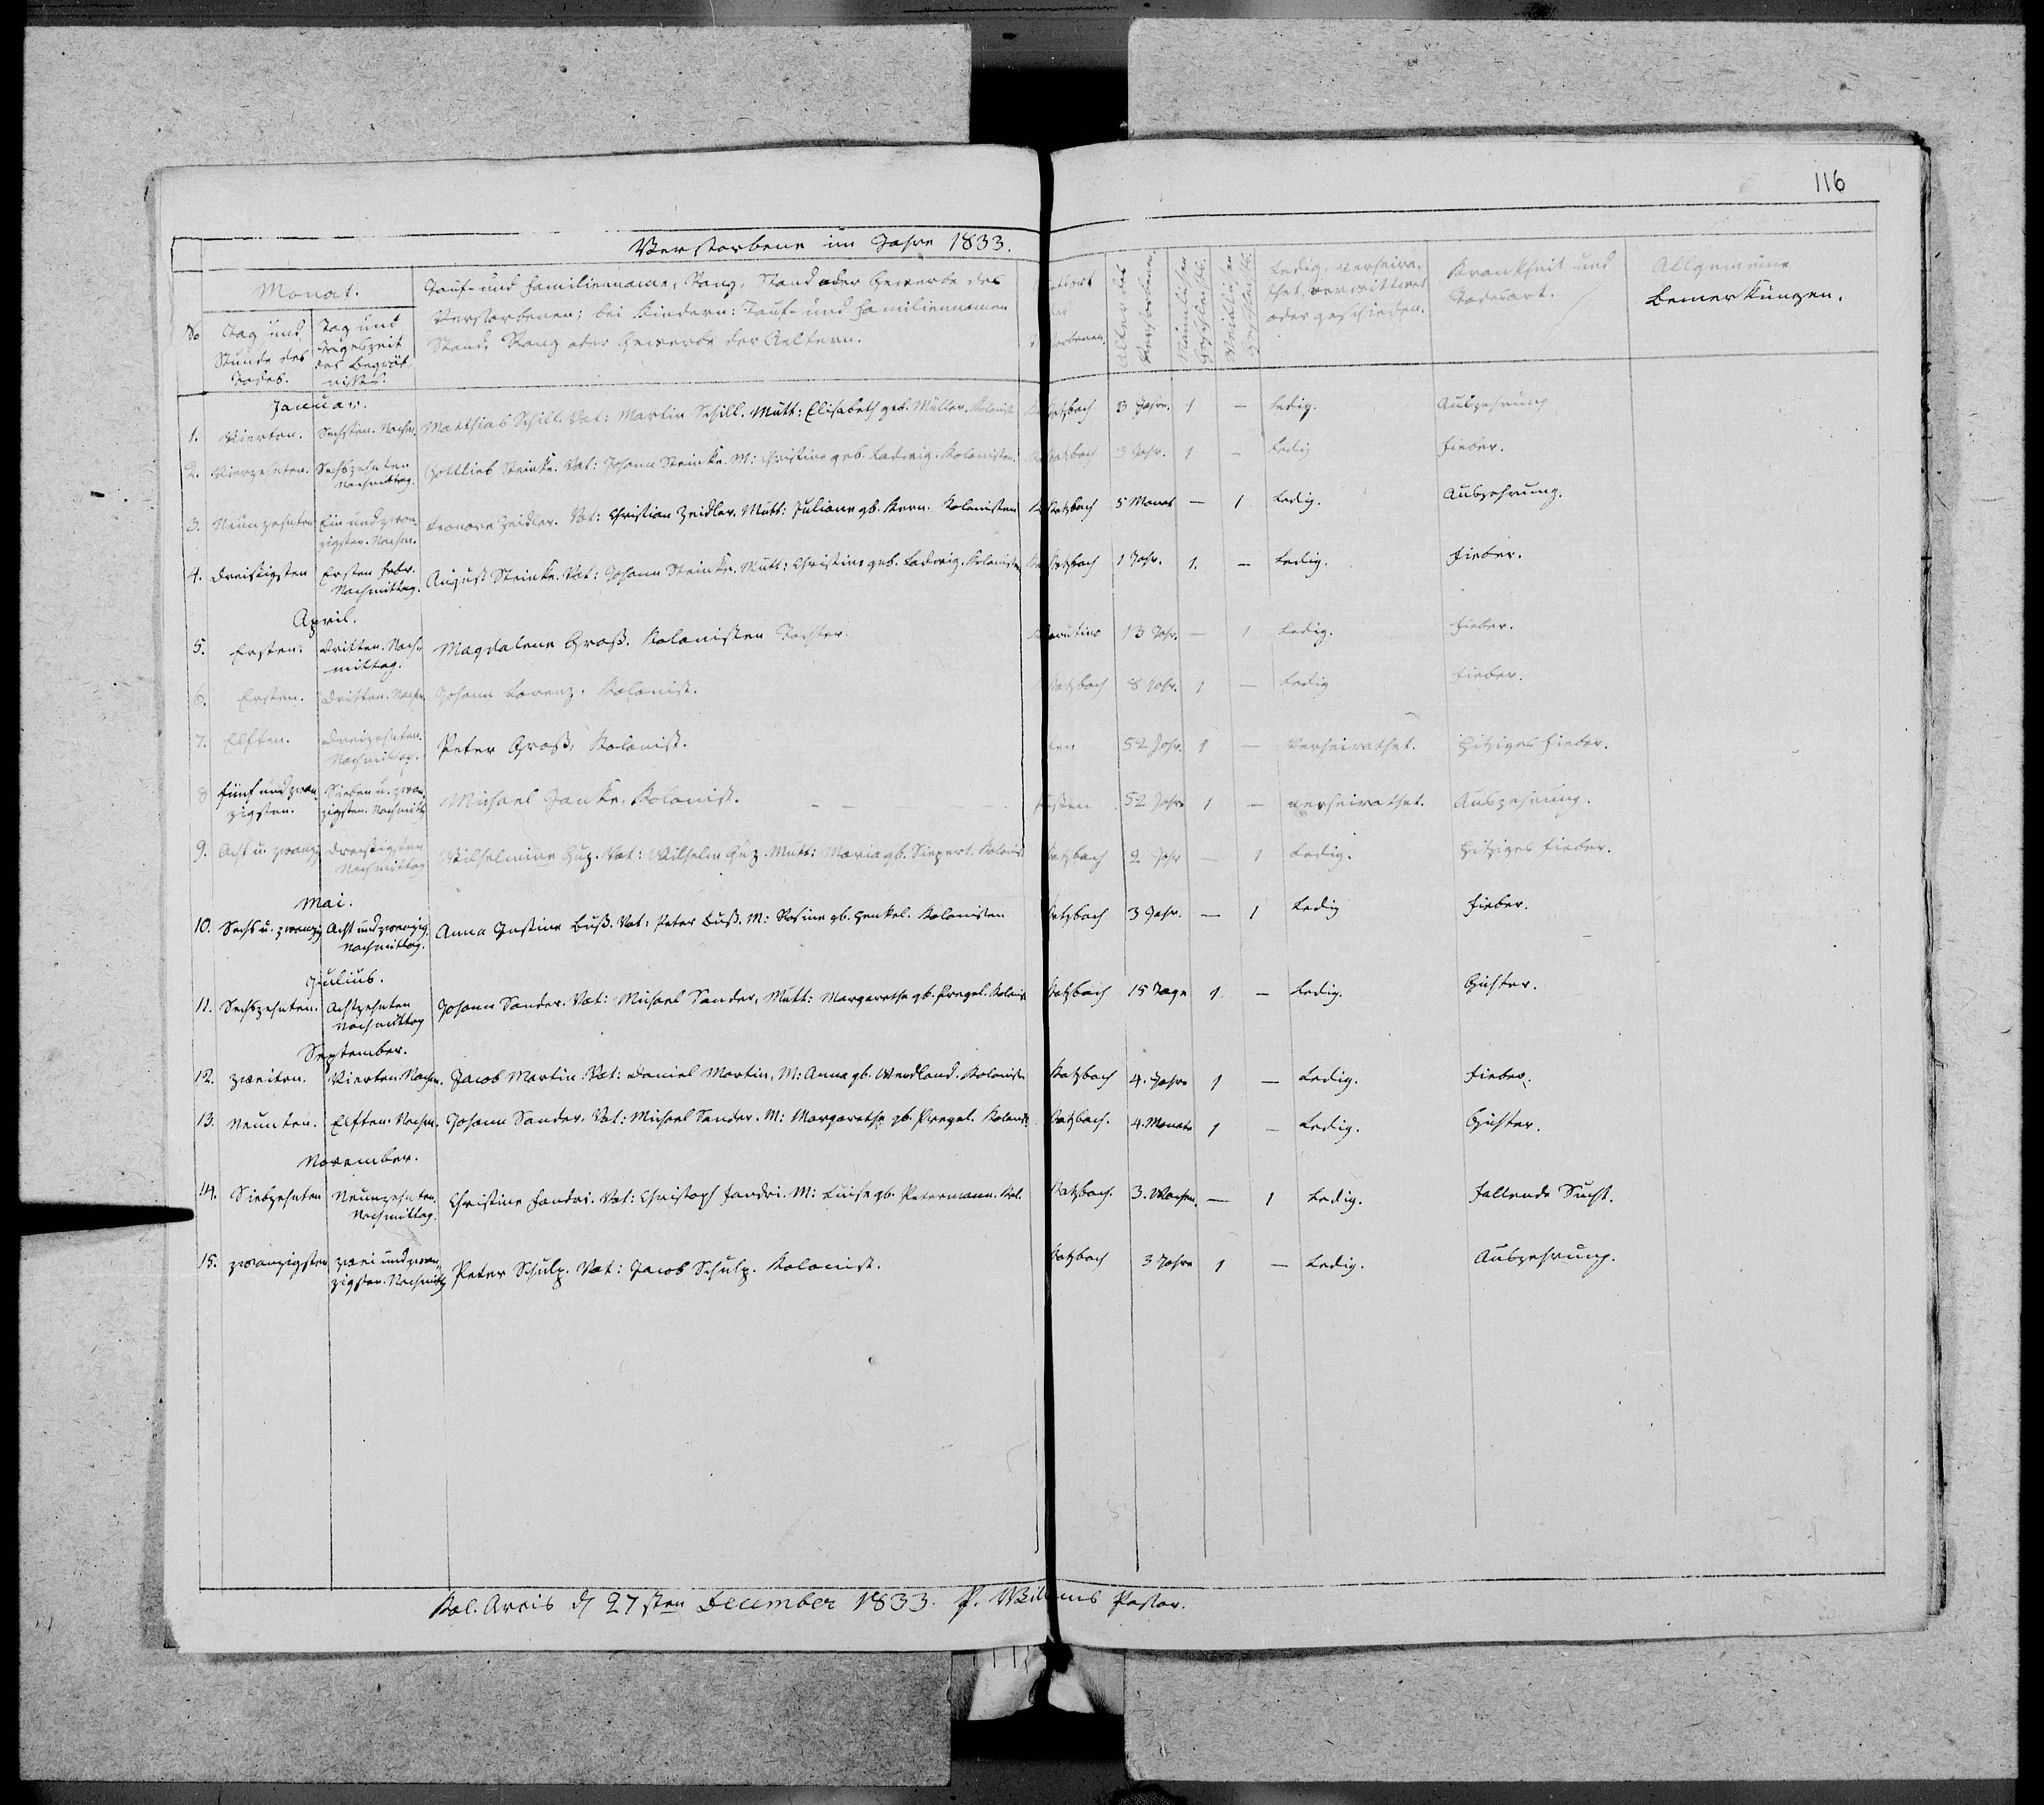 116
Verstorbene im Jahre 1833.
Monat.
No
Tag und Stunde des Todes.
Tag und Tageszeit des Begräbnisses.
Tauf- und Familienname, Rang, Stand oder Gewerbe des
Verstorbenen; bei Kindern: Tauf- und Familiennamen
Stand, Rang oder Gewerbe der Aeltern.
Alter des Verstorbenen.
Männlichen Geschlechts.
Weiblichen Geschlechts.
Ledig, verheira-
thet, verwittwet
oder geschieden.
Krankheit und
Todesart.
Allgemeine
Bemerkungen.
Januar.
1. Vierten. Sechsten. Nachm. Matthias Schill. Vat: Martin Schill. Mutt: Elisabeth geb. Müller. Kolonist. Katzbach 3 Jahre. 1 — Ledig. Auszehrung
2. Vierzehnten. Sechszehnten Nachmittag. Gottlieb Steinke. Vat: Johann Steinke. M: Christine geb. Ladwig. Kolonisten. Katzbach 3 Jahr. 1 — Ledig Fieber.
3. Neunzehnten Ein und zwan- zigsten. Nachm. Leonore Zeidler. Vat: Christian Zeidler. Mutt: Juliane gb. Kern. Kolonisten Katzbach 5 Monat — 1 Ledig. Auszehrung.
4. Dreisigsten Ersten Febr. Nachmittag. August Steinke. Vat: Johann Steinke. Mutt: Christine geb. Ladwig. Kolonisten Katzbach 1 Jahr. 1. — Ledig. Fieber.
April.
5. Ersten. Dritten. Nach- mittag. Magdalena Groß. Kolonisten Tochter. 13 Jahr. — 1 Ledig. Fieber.
6. Ersten. Dritten. Nachm. Johann Lorenz. Kolonist. Katzbach 8 Jahr. 1 — Ledig Fieber.
7. Elften. Dreizehnten. Nachmittag. Peter Groß, Kolonist. len 52 Jahr. 1 — Verheirathet. Hitziges Fieber.
8 Fünf und zwan- zigsten. Sieben u. zwan- zigsten. Nachmitt. Michael Janke, Kolonist. 52 Jahr 1 — verheirathet. Auszehrung.
9. Acht u. zwanzig Dreisigsten Nachmittag Wilhelmine Guz. Vat: Wilhelm Guz. Mutt: Maria gb. Siepert. Kolonist Katzbach 2 Jahr — 1 Ledig. Hitziges Fieber.
Mai.
10. Sechs u. zwanzig Acht und zwanzig. Nachmittag. Anna Justine Buß. Vat: Peter Buß. M: Rosine gb. Henkel. Kolonisten Katzbach 3 Jahr. — 1 Ledig Fieber.
Julius.
11. Sechszehnten. Achtzehnten Nachmittag Johann Sander. Vat: Michael Sander, Mutt: Margarethe gb. Pregel. Kolonist Katzbach 15 Tage 1 — Ledig.
September.
12. Zweiten. Vierten. Nachm. Jacob Martin. Vat: Daniel Martin, M: Anna gb. Wendland. Kolonist Katzbach 4. Jahre 1 — Ledig. Fieber.
13. Neunten. Elften. Nachm. Johann Sander. Vat: Michael Sander. M: Margarethe gb. Pregel. Kolonist Katzbach. 4. Monate 1 — Ledig.
November.
14. Siebzehnten Neunzehnten. Nachmittag. Christine Fandri. Vat: Christoph Fandri. M: Luise gb. Petermann. Kol. Katzbach. 3. Wochen. — 1 Ledig. Fallende Sucht.
15. Zwanzigsten Zwei und zwan- zigsten. Nachmittg Peter Schulz. Vat: Jacob Schulz. Kolonist. Katzbach 3 Jahre 1 — Ledig. Auszehrung.
Kol. Arcis d 27sten December 1833. Pastor.